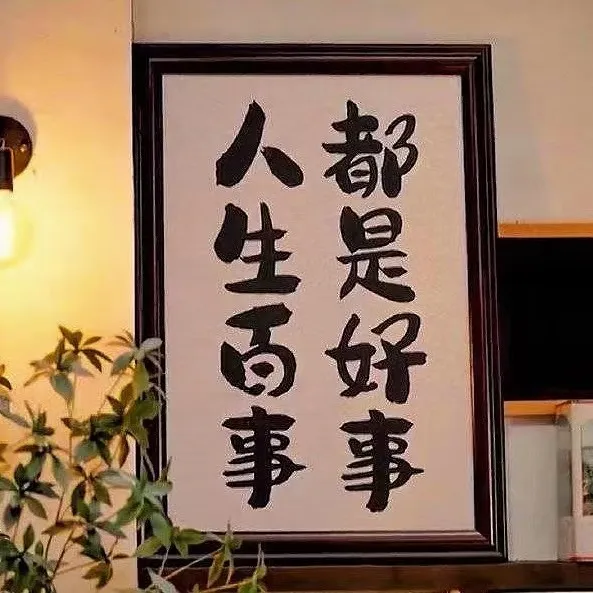 人生百事
都是好事